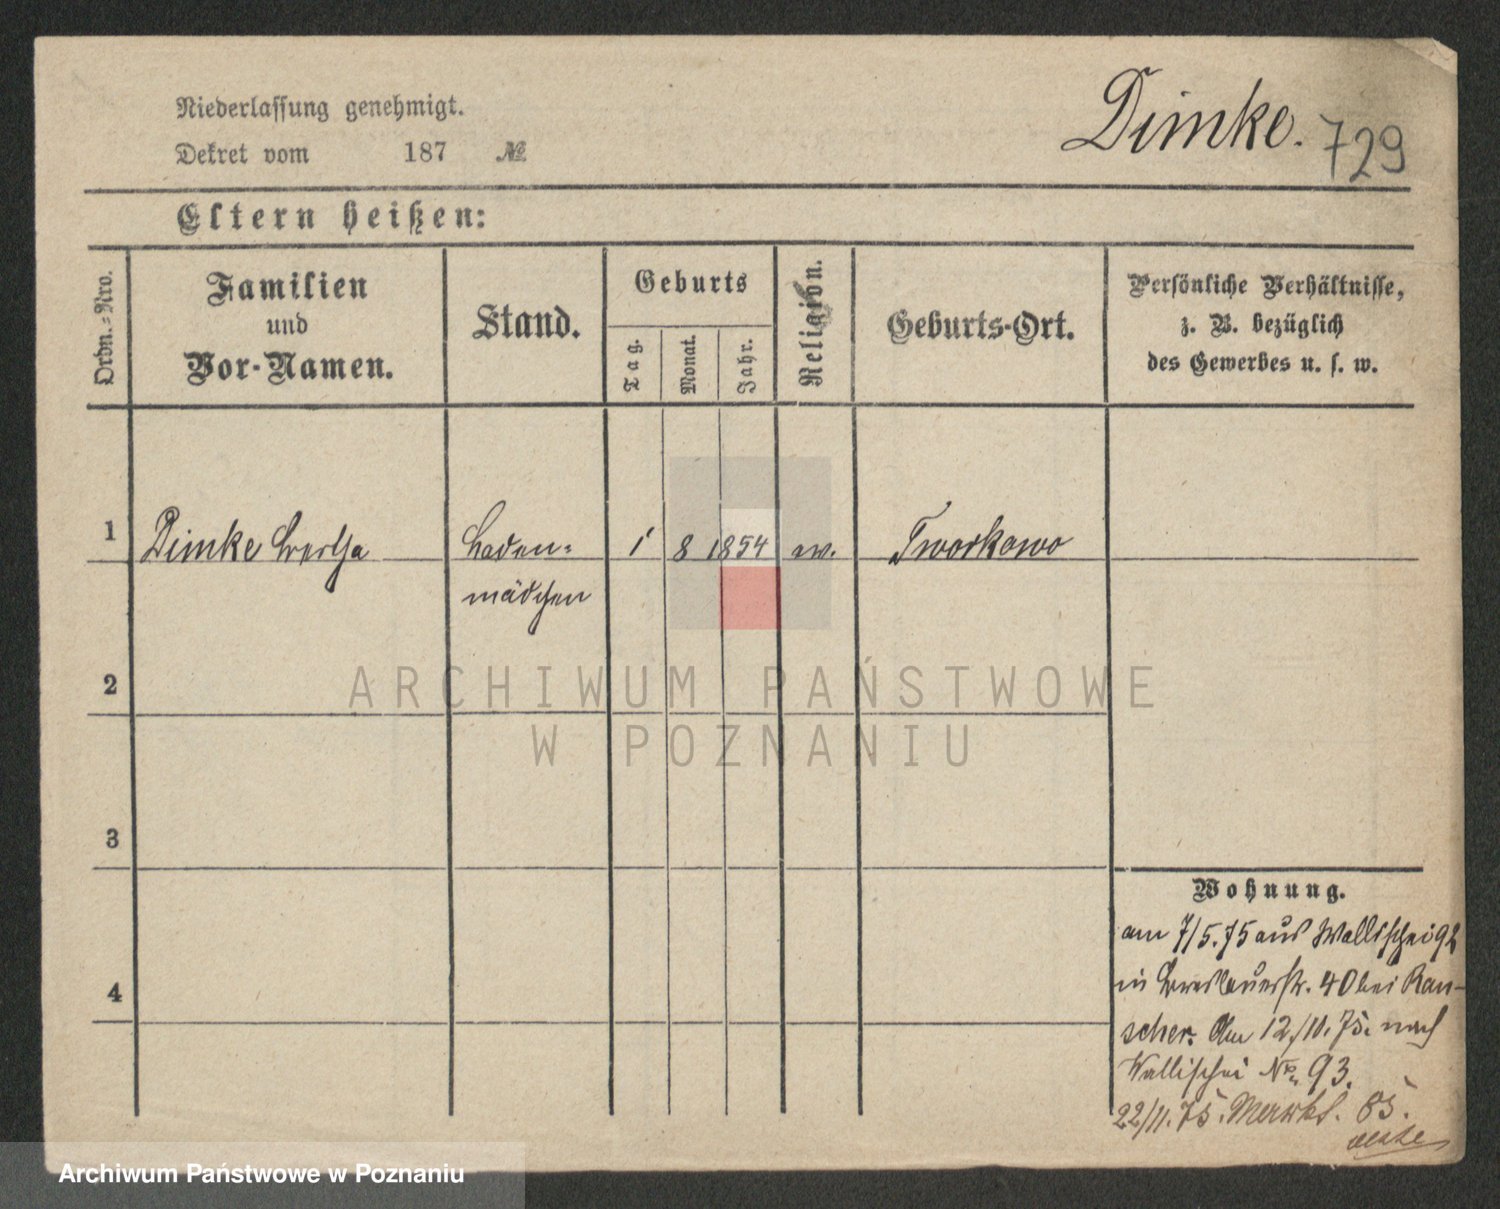 Niederlassung genehmigt.
Dekret vom 187 №
Dimke. 729
Eltern heißen:
Ordn.-Nro.
Familien
und
Vor-Namen.
Stand.
Geburts
Tag.
Monat.
Jahr.
Religion.
Geburts-Ort.
Persönliche Verhältnisse,
z. B. bezüglich
des Gewerbes u. s. w.
1 Dimke Bertha Laden- 1 8 1854 ev. Tworkowo
mädchen
2
ARCHIWUM PAŃSTWOWE
W POZNANIU
3
Wohnung.
am 7/5.75 aus Wallischei 92
in Breslauerstr. 40 bei Rau-
scher. Am 12/11.75. nach
4
Wallischei No. 93.
22/11.75. Markt. 85.
Archiwum Państwowe w Poznaniu